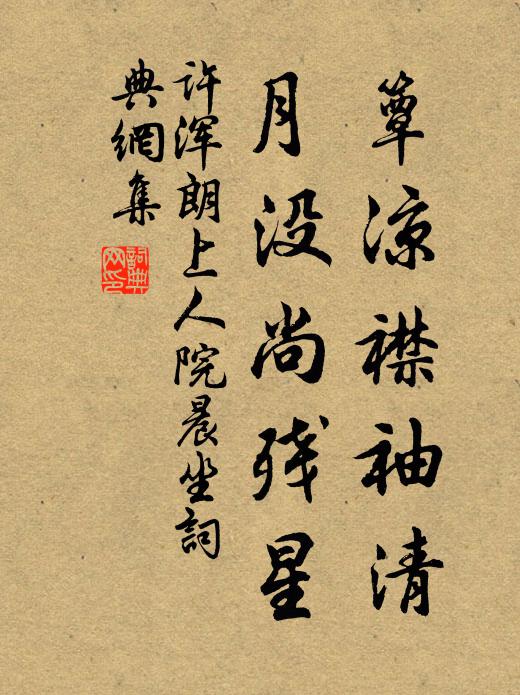 簟凉襟袖清
月没尚残星
许浑朗上人院晨坐詞
典網集
詞典
网印